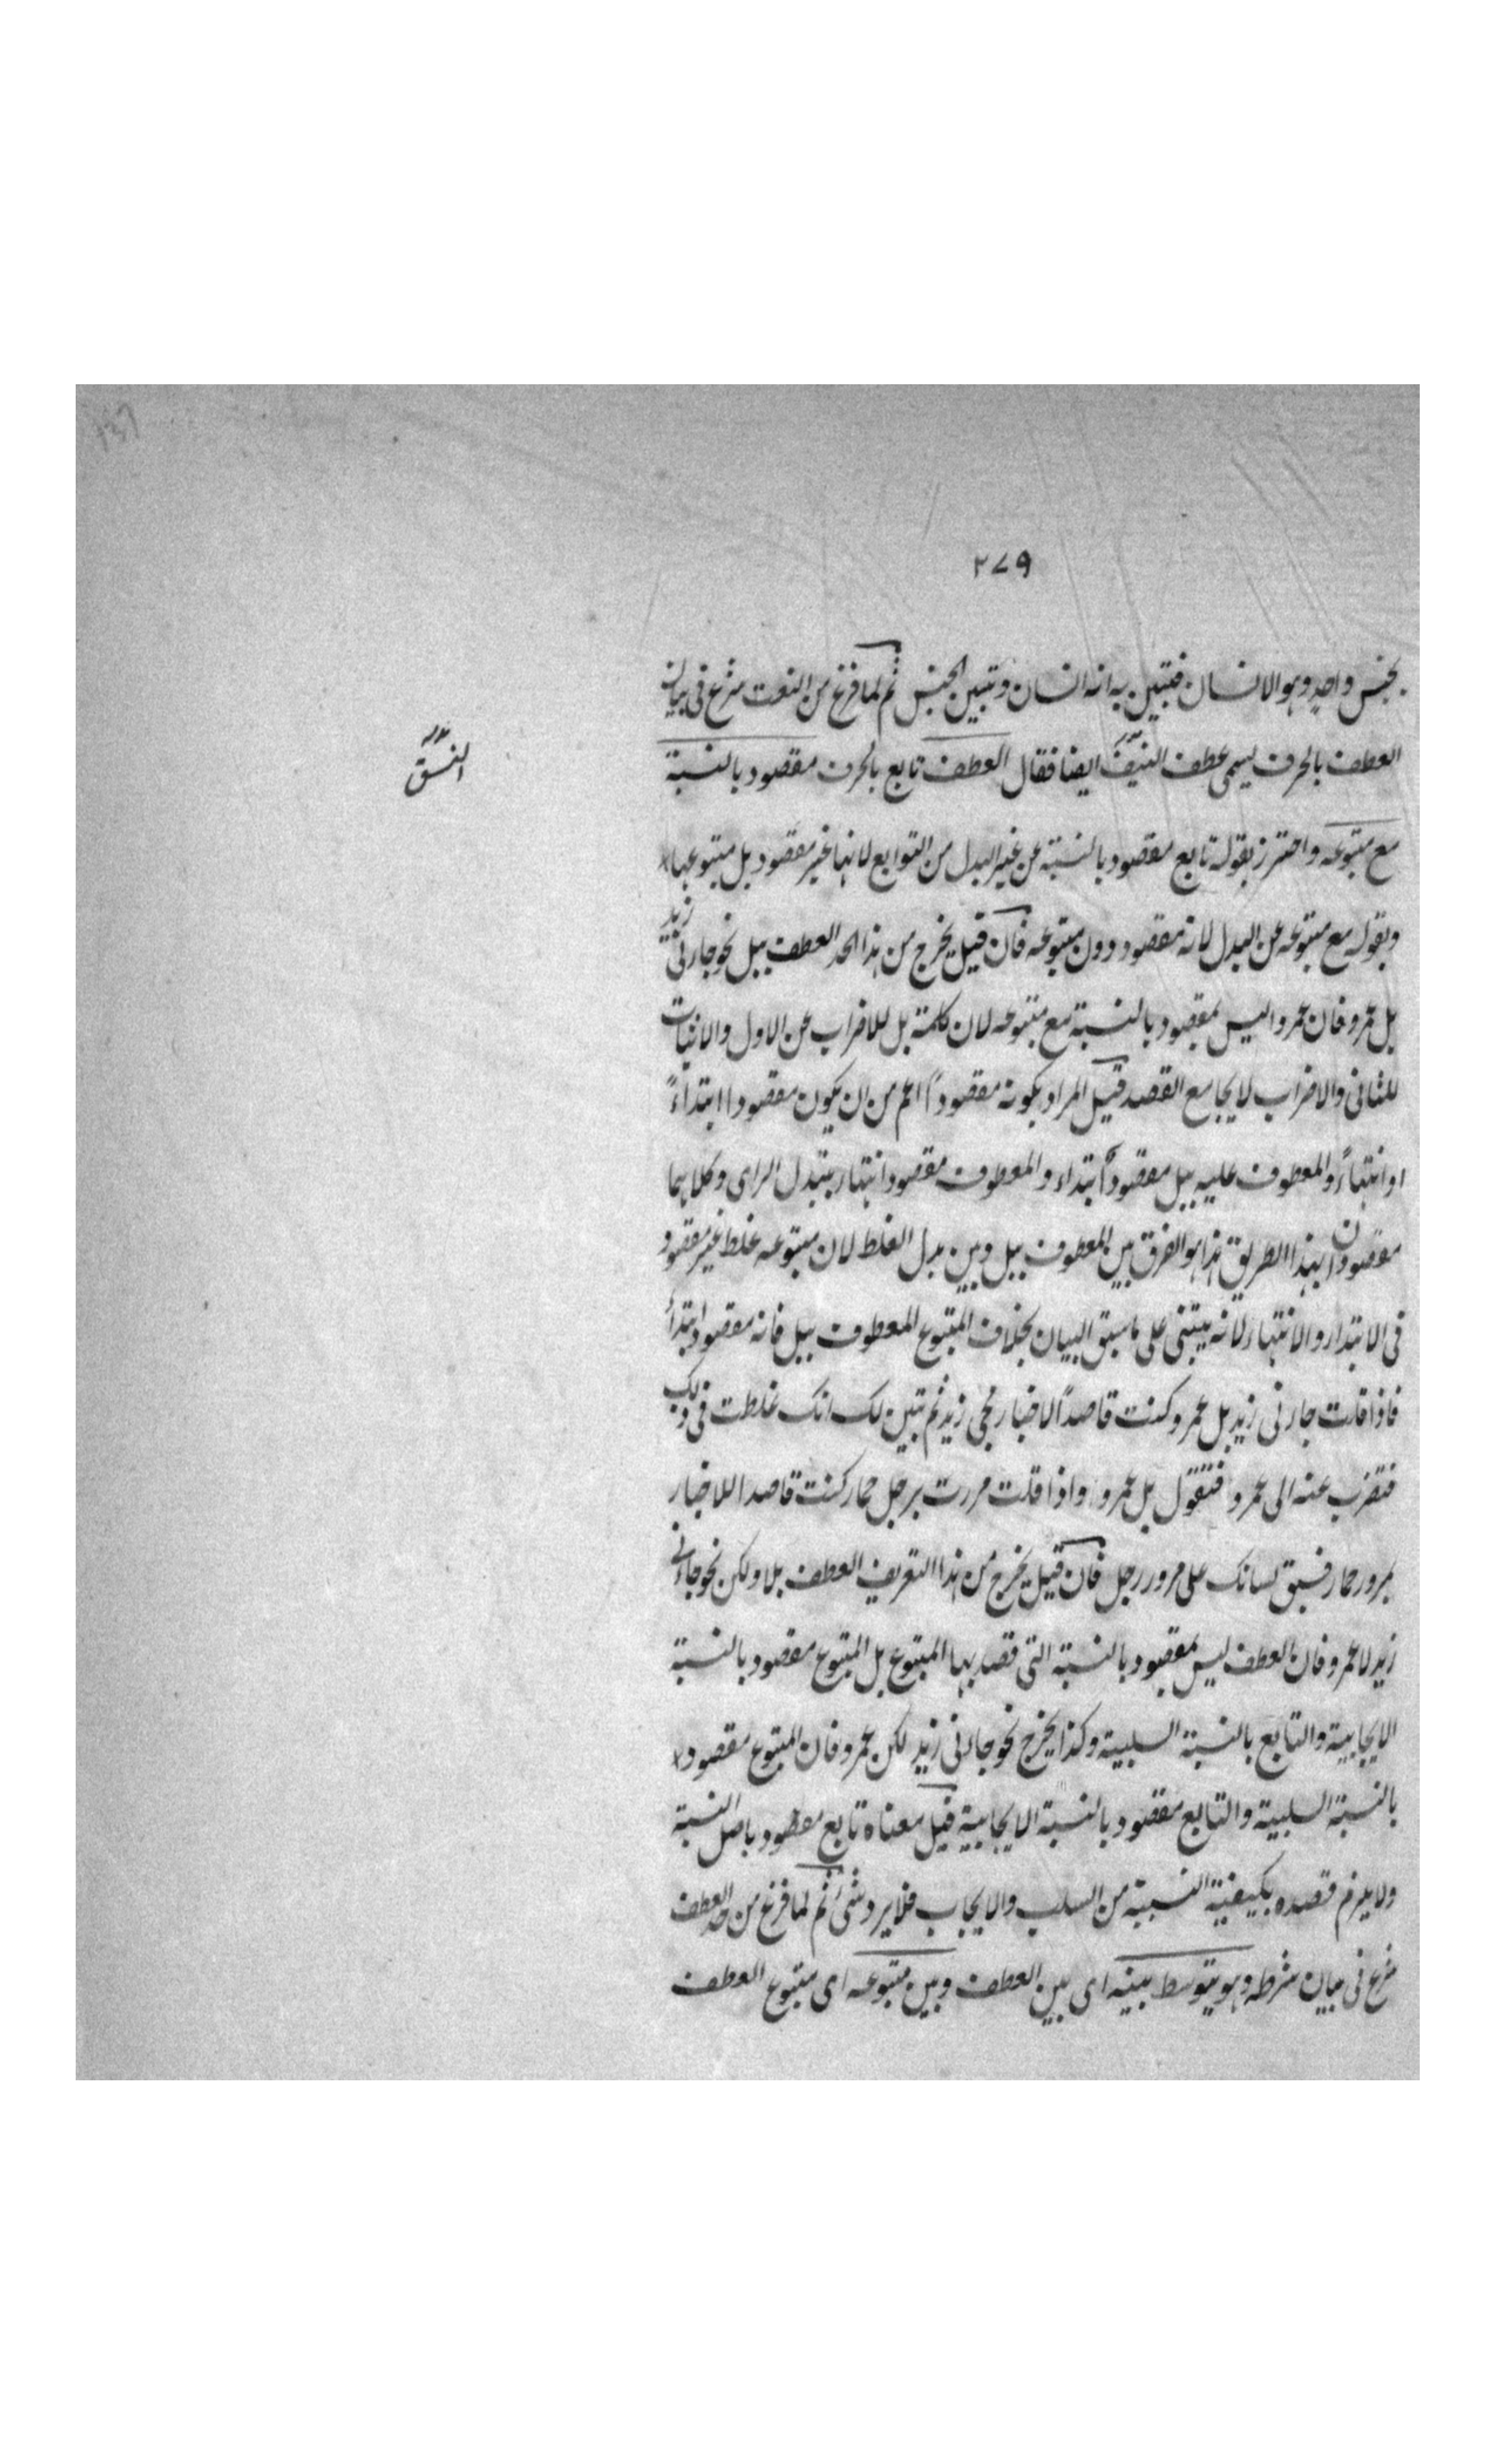 ٢٧٩
بجنس واحد وهو الانسان فتبين به انه انسان وتبين الجنس ثم لما فرغ من النعت شرع فى بيان
العطف بالحرف يسمى عطف النسق ايضا فقال العطف تابع بالحرف مقصود بالنسبة
النسق
مع متبوعه واحترز بقوله تابع مقصود بالنسبة عن غير البدل من التوابع لانها غير مقصود بل متبوعها
وبقوله مع متبوعه عن البدل لانه مقصود دون متبوعه فان قيل يخرج من هذا الحد العطف ببل نحو جاءنى زيد
بل عمرو فان عمروا ليس بمقصود بالنسبة مع متبوعه لان كلمة بل للاضراب عن الاول والاثبات
للثانى والاضراب لا يجامع القصد قيل المراد بكونه مقصوداً اعم من ان يكون مقصودا ابتداءً
او انتهاءً والمعطوف عليه ببل مقصود ابتداء والمعطوف مقصود انتهاء بتبدل الراى وكلاهما
مقصودان بهذا الطريق هذا هو الفرق بين المعطوف ببل وبين بدل الغلط لان متبوعه غلط غير مقصود
فى الابتداء والانتهاء لانه يبتنى على ما سبق البيان بخلاف المتبوع المعطوف ببل فانه مقصود ابتداءً
فاذا قلت جاءنى زيد بل عمرو كنت قاصداً لاخبار مجى زيد ثم تبين لك انك غلطت فى ذلك
فتضرب عنه الى عمرو فتقول بل عمرو واذا قلت مررت برجل حمار كنت قاصدا للاخبار
بمرور حمار فسبق لسانك على مرور رجل فان قيل يخرج من هذا التعريف العطف بلا ولكن نحو جاءنى
زيد لا عمرو فان العطف ليس بمقصود بالنسبة التى قصد بها المتبوع بل المتبوع مقصود بالنسبة
الايجابية والتابع بالنسبة السلبية وكذا يخرج نحو جاءنى زيد لكن عمرو فان المتبوع مقصود
بالنسبة السلبية والتابع مقصود بالنسبة الايجابية قيل معناه تابع مقصود باصل النسبة
ولا يلزم قصده بكيفية النسبة من السلب والايجاب فلا يرد شئ ثم لما فرغ من حد العطف
شرع فى بيان شرطه وهو يتوسط بينه اى بين العطف وبين متبوعه اى متبوع العطف